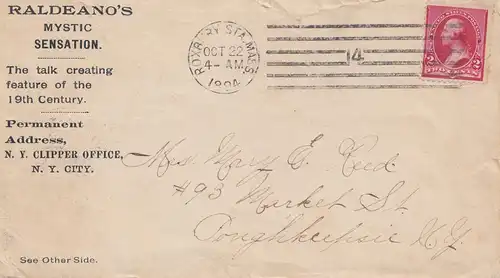 RALDEANO'S
MYSTIC
SENSATION.
The talk creating
feature of the
19th Century.
Permanent
Address,
N. Y. CLIPPER OFFICE,
N. Y. CITY.
See Other Side.
ROXBURY STA. MASS
OCT 22
4-AM
1894
14
2 2
TWO CENTS
Mrs. Mary E. Reed
#93 Market St.
Poughkeepsie N.Y.